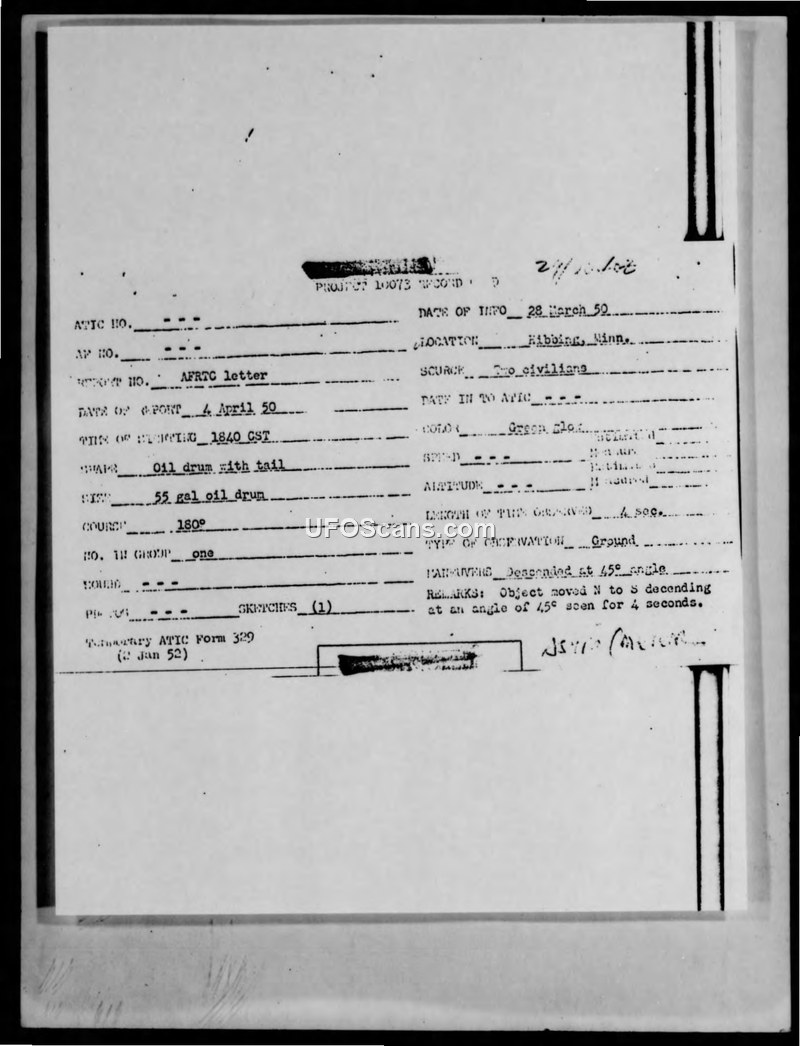 PROJECT 10073 RECORD
ATIC NO. - - -
AF NO. - - -
REPORT NO. AFRTC letter
DATE OF REPORT 4 April 50
TIME OF SIGHTING 1840 CST
SHAPE Oil drum with tail
SIZE 55 gal oil drum
COURSE 180°
NO. IN GROUP one
SOUND - - -
PHOTOS - - - SKETCHES (1)
Temporary ATIC Form 329
(2 Jan 52)
DATE OF INFO 28 March 50
LOCATION Hibbing, Minn.
SOURCE Two civilians
DATE IN TO ATIC - - -
COLOR Green Glow
SPEED - - -
ALTITUDE - - -
LENGTH OF TIME OBSERVED 4 sec.
TYPE OF OBSERVATION Ground
MANEUVERS Descended at 45° angle
REMARKS: Object moved N to S decending
at an angle of 45° seen for 4 seconds.
UFOScans.com